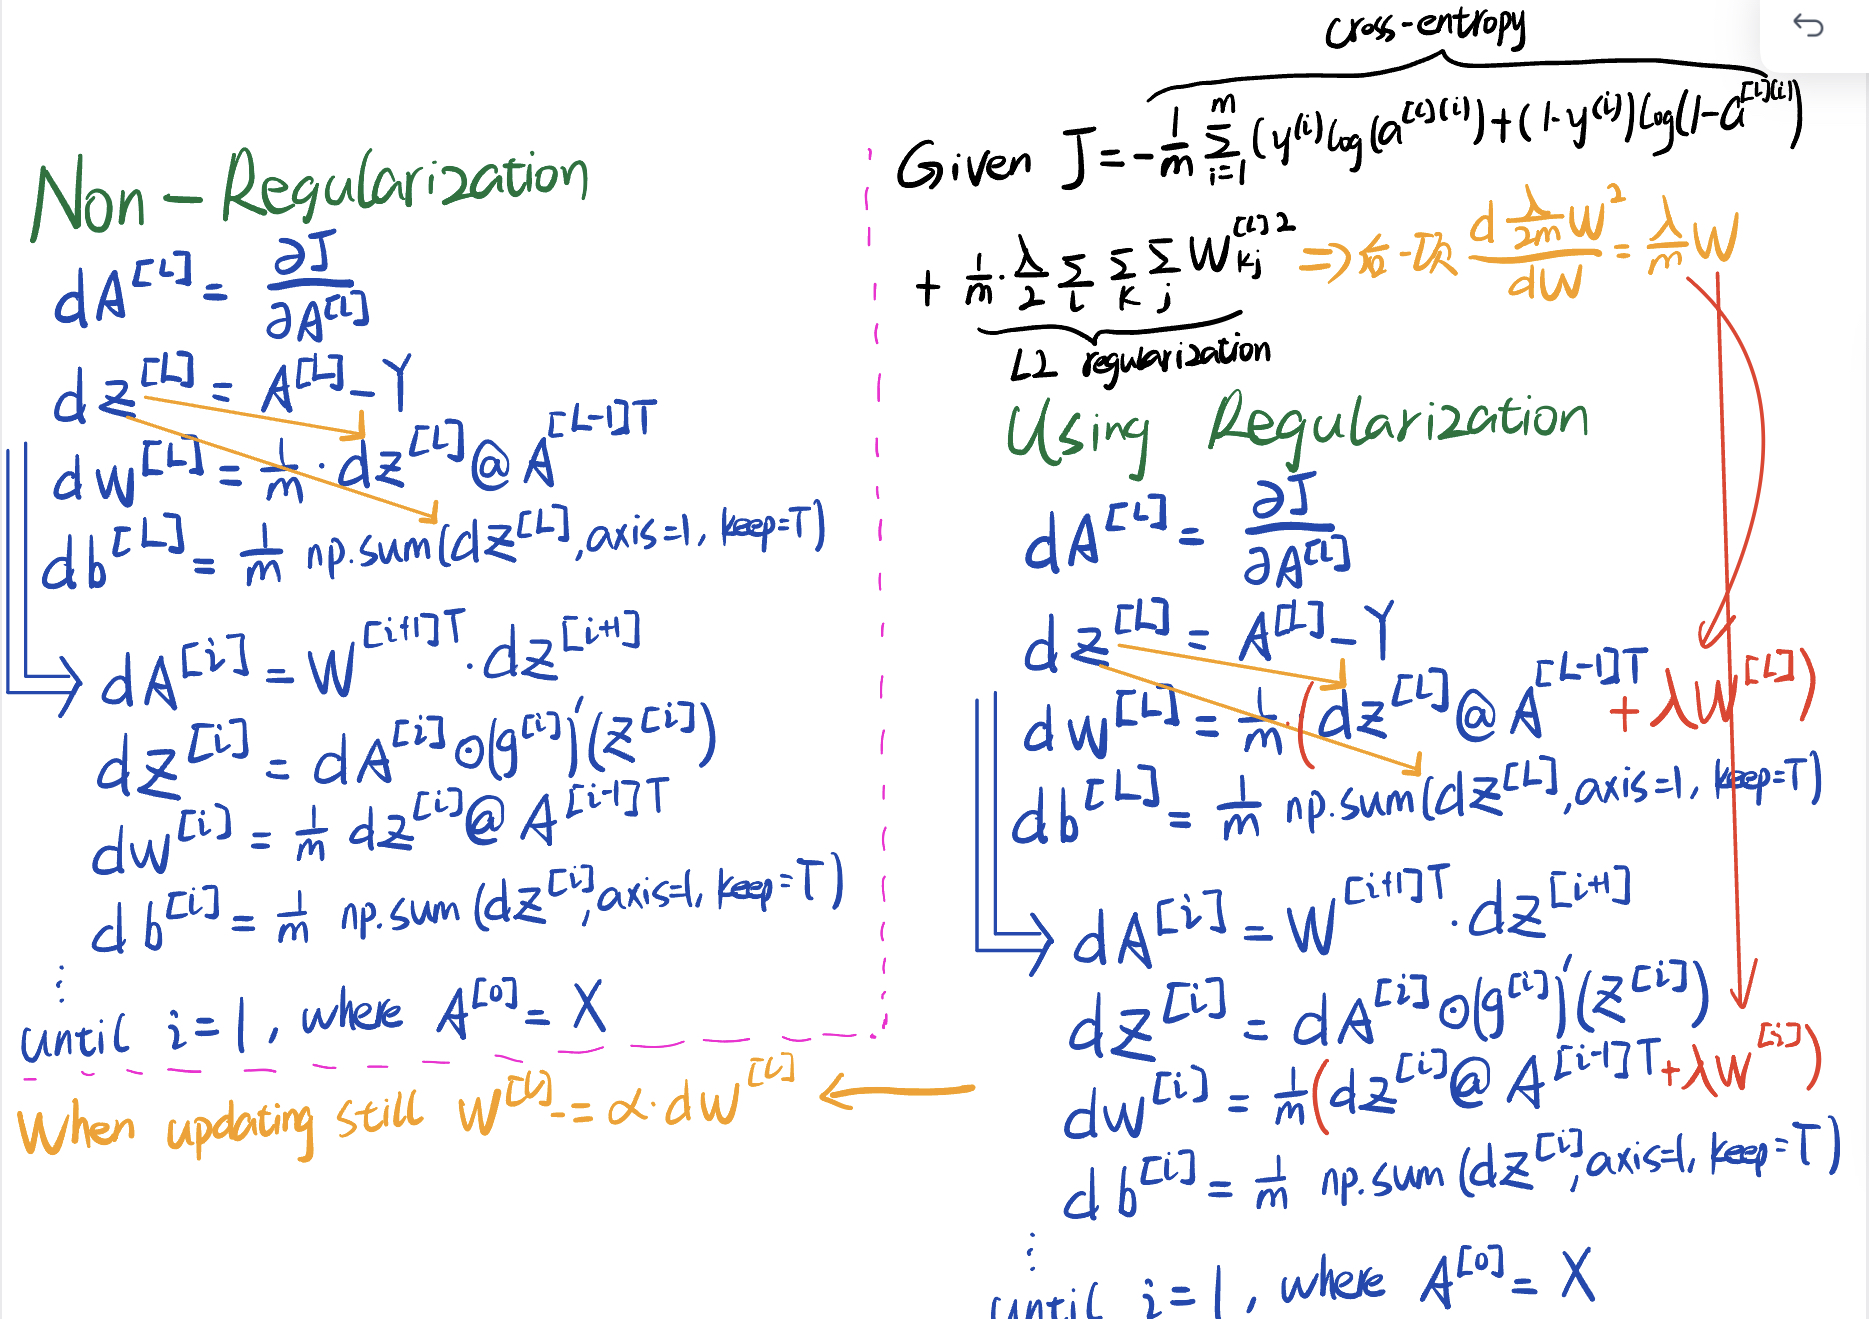 Non-Regularization
dA^[L] = ∂J/∂A^[L]
dz^[L] = A^[L] - Y
dw^[L] = 1/m · dz^[L] @ A^[L-1]T
db^[L] = 1/m np.sum(dz^[L], axis=1, keep=T)
dA^[i] = W^[i+1]T · dz^[i+1]
dz^[i] = dA^[i] ⊙ (g^[i])'(z^[i])
dw^[i] = 1/m dz^[i] @ A^[i-1]T
db^[i] = 1/m np.sum(dz^[i], axis=1, keep=T)
⋮
until i=1, where A^[0] = X
When updating still W^[L] -= α·dw^[L]
cross-entropy
Given J = -1/m Σ_{i=1}^m (y^(i) log(a^[L](i)) + (1-y^(i)) log(1-a^[L](i))
+ 1/m · λ/2 Σ_L Σ_K Σ_j W_kj^[L]2 ⇒ 后一项 d λ/2m W^2 / dW = λ/m W
L2 regularization
Using Regularization
dA^[L] = ∂J/∂A^[L]
dz^[L] = A^[L] - Y
dw^[L] = 1/m · (dz^[L] @ A^[L-1]T + λW^[L])
db^[L] = 1/m np.sum(dz^[L], axis=1, keep=T)
dA^[i] = W^[i+1]T · dz^[i+1]
dz^[i] = dA^[i] ⊙ (g^[i])'(z^[i])
dw^[i] = 1/m (dz^[i] @ A^[i-1]T + λW^[i])
db^[i] = 1/m np.sum(dz^[i], axis=1, keep=T)
⋮
until i=1, where A^[0] = X